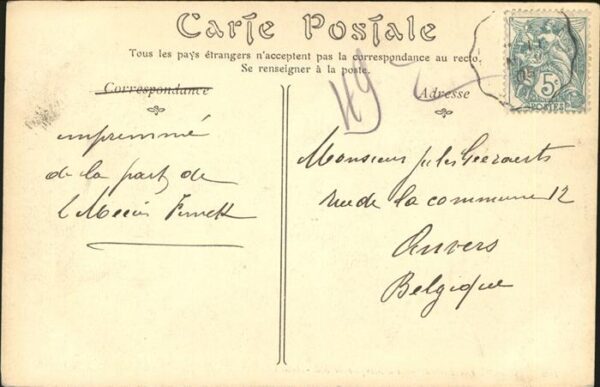 Carte Postale
Tous les pays étrangers n'acceptent pas la correspondance au recto.
Se renseigner à la poste.
Correspondance
Adresse
49
5c
POSTES
imprimmé
de la part de
Monsieur Jules Geeraerts
rue de la commune 12
Anvers
Belgique